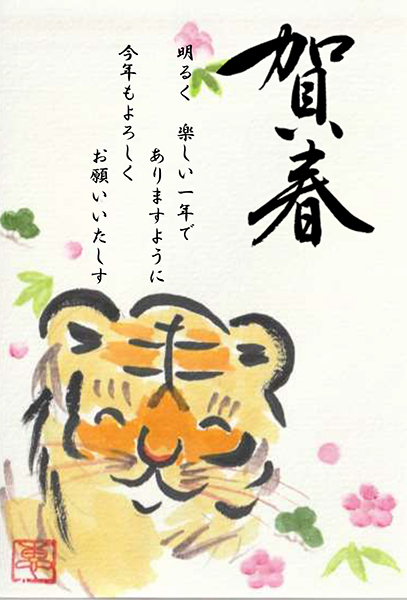 賀春
明るく 楽しい一年で
ありますように
今年もよろしく
お願いいたしす